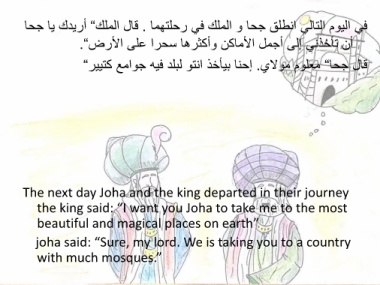 في اليوم التالي انطلق جحا و الملك في رحلتهما . قال الملك“ أريدك يا جحا
أن تأخذني إلى أجمل الأماكن وأكثرها سحرا على الأرض“.
قال جحا“ معلوم مولاي. إحنا بيأخذ انتو لبلد فيه جوامع كتيير“
The next day Joha and the king departed in their journey
the king said: “I want you Joha to take me to the most
beautiful and magical places on earth”
joha said: “Sure, my lord. We is taking you to a country
with much mosques.”